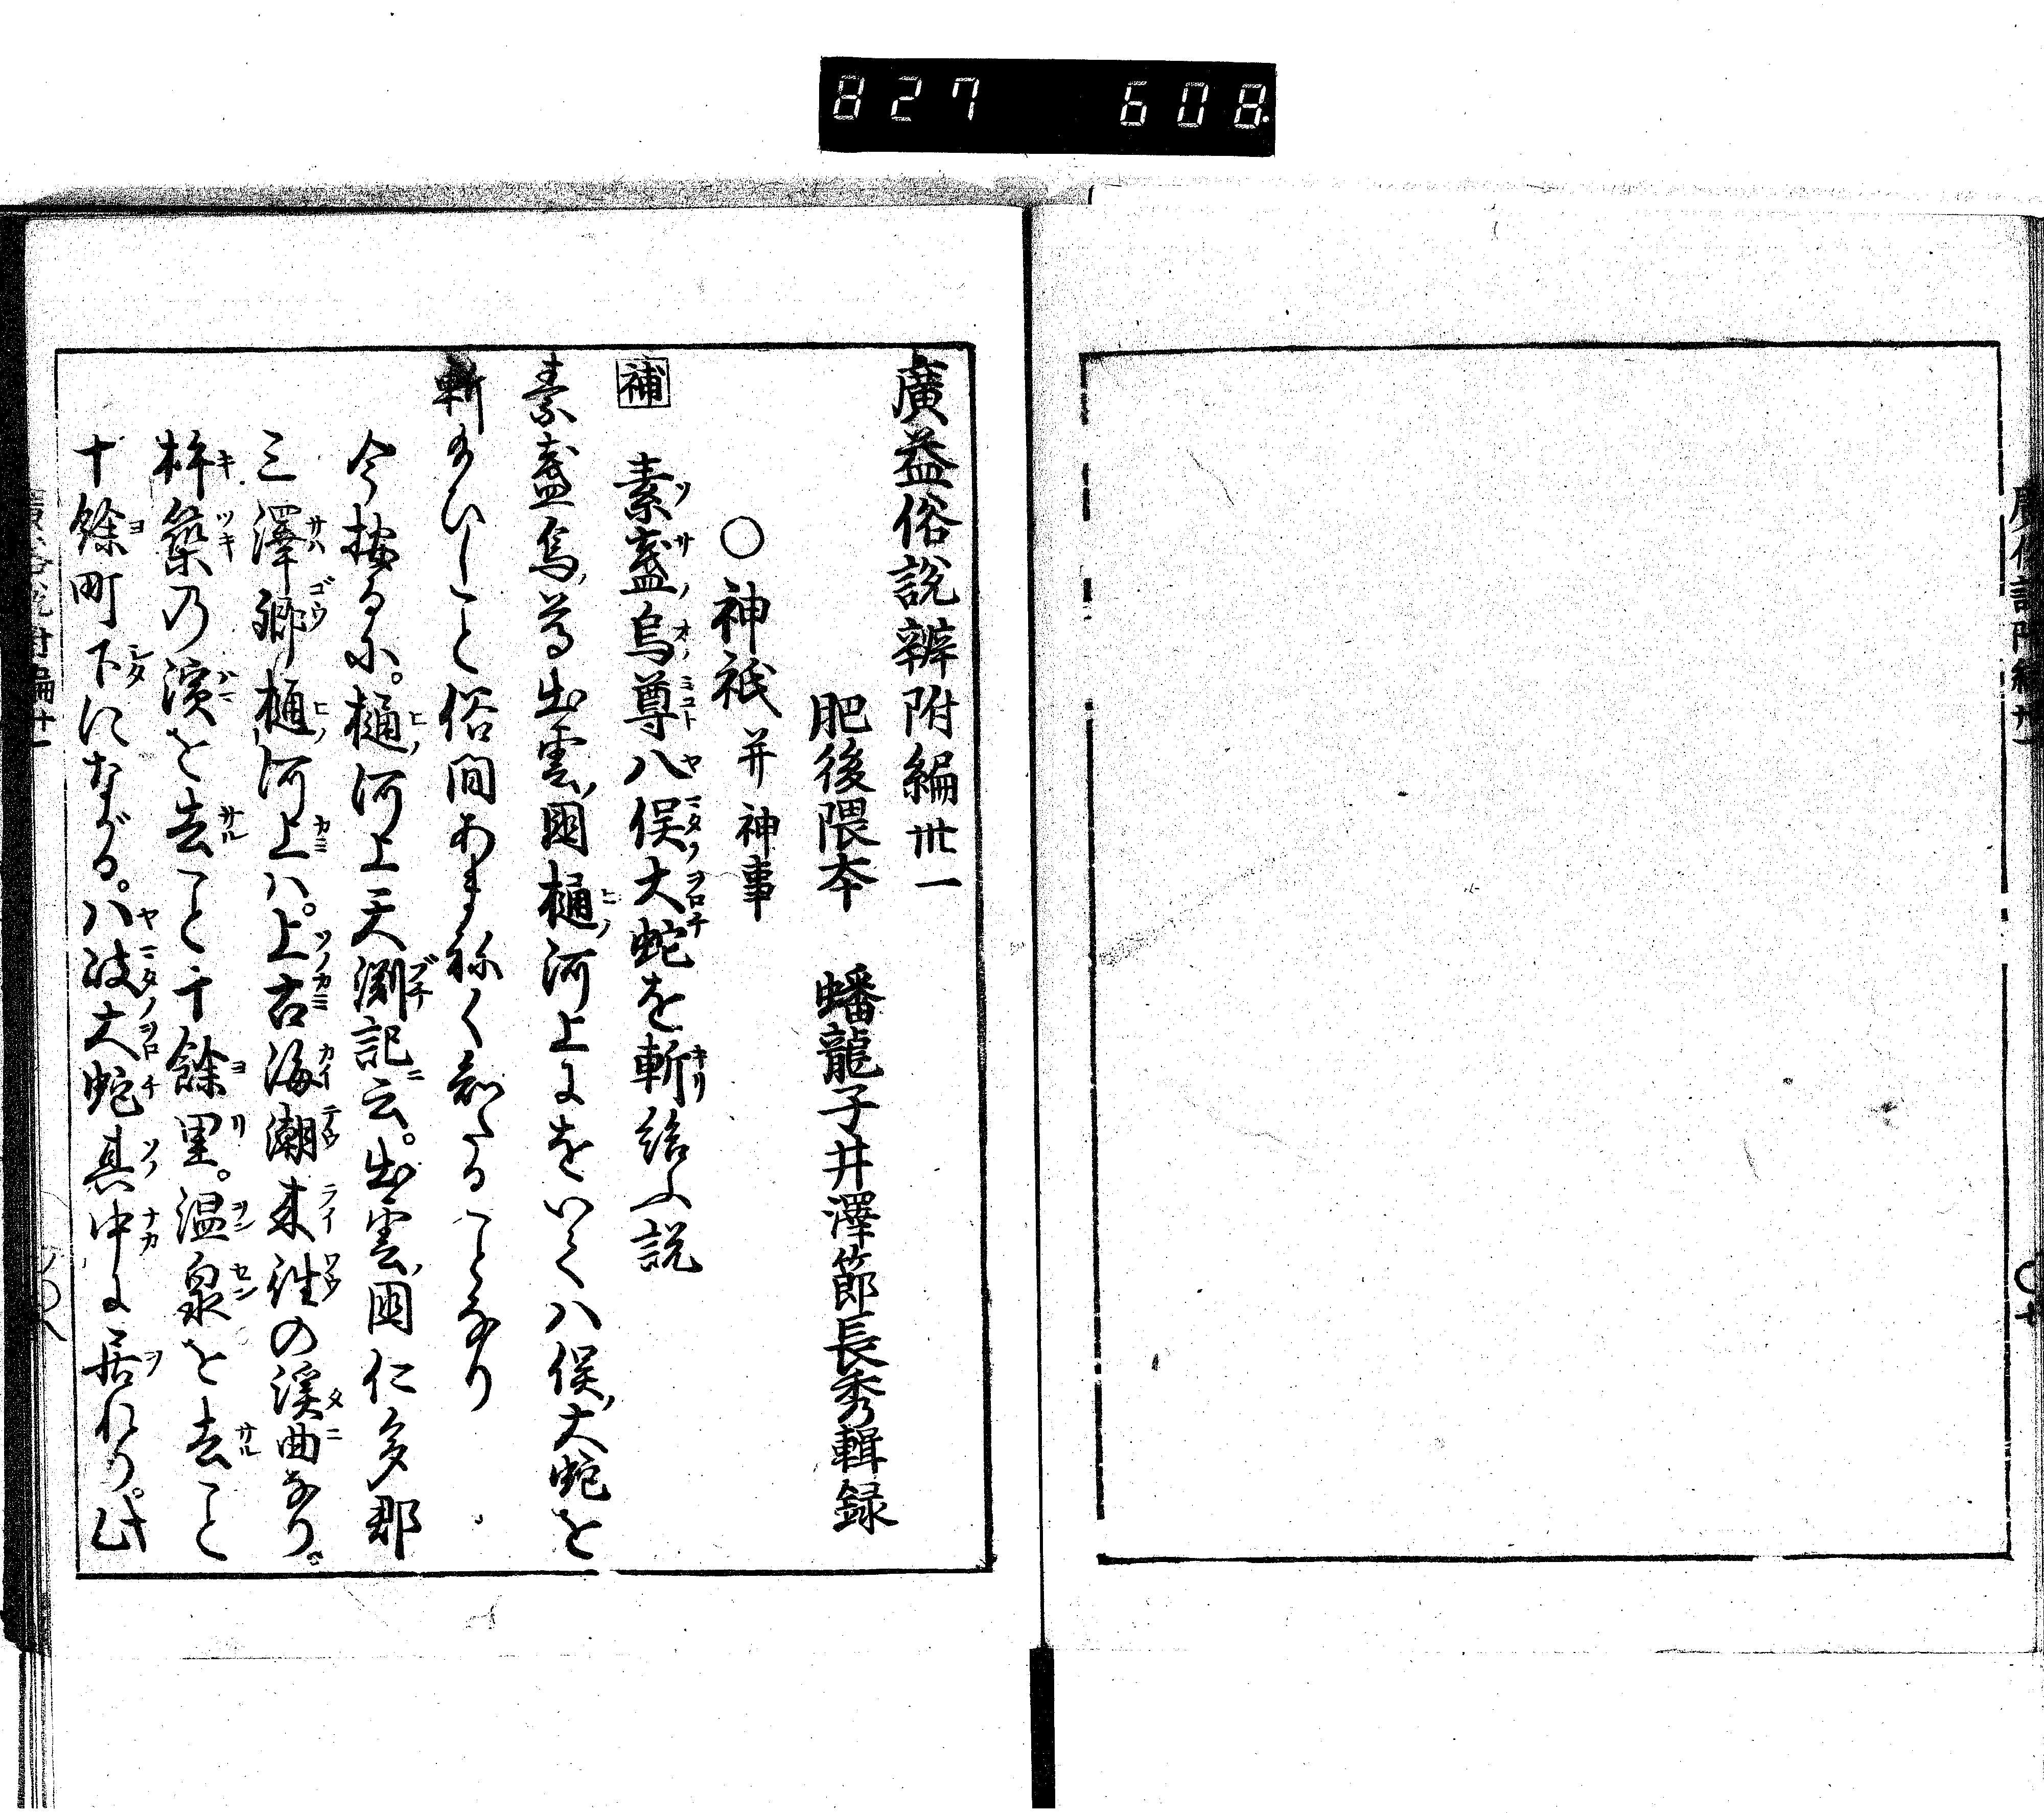 827 608
廣益俗說辨附編卅一
肥後隈本 蟠龍子井澤節長秀輯録
○神祇并神事
補 素盞烏尊八俣大蛇を斬給ふ説
素盞烏ノ尊出雲ノ國樋ノ河上にをいて八俣ノ大蛇を
斬給ひしこと俗間あまねく知たることなり
今按るに。樋ノ河上天淵記ニ云。出雲ノ國仁多郡
三澤郷樋ノ河上ハ。上古海潮来往の渓曲なり。
杵築乃濱を去こと千餘里。温泉を去こと
十餘町下にながる。八岐大蛇其中に居れり。此